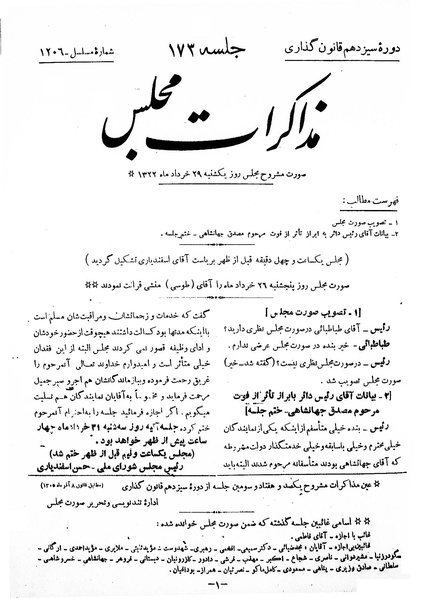 دورهٔ سیزدهم قانون گذاری
جلسه ۱۷۳
شمارهٔ مسلسل - ۱۲۰۶
مذاکرات مجلس
صورت مشروح مجلس روز یکشنبه ۲۹ خرداد ماه ۱۳۲۲ **
فهرست مطالب:
۱ - تصویب صورت مجلس
۲- بیانات آقای رئیس دائر به ابراز تأثر از فوت مرحوم مصدق جهانشاهی - ختم جلسه.
( مجلس یکساعت و چهل دقیقه قبل از ظهر بریاست آقای اسفندیاری تشکیل گردید )
صورت مجلس روز پنجشنبه ۲۶ خرداد ماه را آقای ( طوسی ) منشی قرائت نمودند **
[ ۱ - تصویب صورت مجلس ]
رئیس - آقای طباطبائی درصورت مجلس نظری دارید؟
طباطبائی - خیر بنده در صورت مجلس عرضی ندارم.
رئیس - درصورت مجلس نظری نیست؟ (گفته شد - خیر)
صورت مجلس تصویب شد.
[ ۲ - بیانات آقای رئیس دائر بابراز تأثر از فوت
مرحوم مصدق جهانشاهی - ختم جلسه ]
رئیس - بنده خیلی متأسفم از اینکه یکی از نمایندگان
خیلی محترم وخیلی باسابقه وخیلی خدمتگذار دولت مشروطه
که آقای جهانشاهی بودند متأسفانه مرحوم شدند البته باید
گفت که خدمات و زحماتشان و مراقبت‌شان مسلم است
با اینکه مدتها بود کسالت داشتند هیچوقت از حضور خودشان
و ادای وظیفه قصور نمی کردند مجلس البته از این فقدان
خیلی متأثر است و امیدوارم خداوند تعالی آنمرحوم را
غریق رحمت فرموده و بازماندگانشان هم اجر و صبر جمیل
مرحمت فرماید و به آقایان نمایندگان هم تسلیت
میگویم. اگر اجازه فرمائید جلسه را به احترام آنمرحوم
ختم کرده جلسه آتیه روز سه شنبه ۳۱ خرداد ماه چهار
ساعت پیش از ظهر خواهد بود.
(مجلس یکساعت و نیم قبل از ظهر ختم شد)
رئیس مجلس شورای ملی - حسن اسفندیاری
* عین مذاکرات مشروح یکصد و هفتاد و سومین جلسه از دورهٔ سیزدهم قانون گذاری
(مطابق قانون ۸ آذر ماه ۱۳۰۵)
ادارهٔ تندنویسی و تحریر صورت مجلس
** اسامی غائبین جلسه گذشته که ضمن صورت مجلس خوانده شده:
غائب با اجازه - آقای فاطمی.
غائبین بی اجازه - آقایان: مجد ضیائی - دکتر سمیعی - افخمی - رهبری - شهدوست - مؤید ثابتی - ملایری - مؤید احمدی - ارگانی -
گودرزنیا - مشیر دوانی - ناصری - شجاع - اکبر - مهذب - قرشی - دادور - کازرونیان - دبستانی - فروهر - جهانشاهی - خسروشاهی -
سلطانی - صادق وزیری - پناهی - مسعودی - کامل ماکو - نصرتیان - همراز - بوداغیان.
-۱-